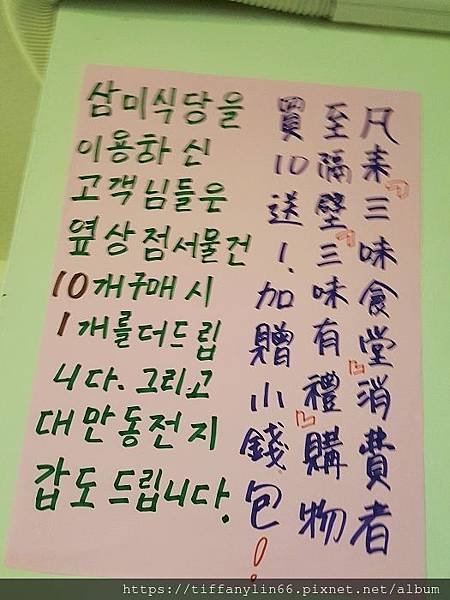 삼미식당을
이용하신
고객님들은
옆상점서물건
10개구매시
1개를더드립
니다. 그리고
대만동전지
갑도드립니다.
凡来三味食堂消費者
至隔壁三味有禮購物
買10送1.加贈小錢包!
https://tiffanylin66.pixnet.net/album